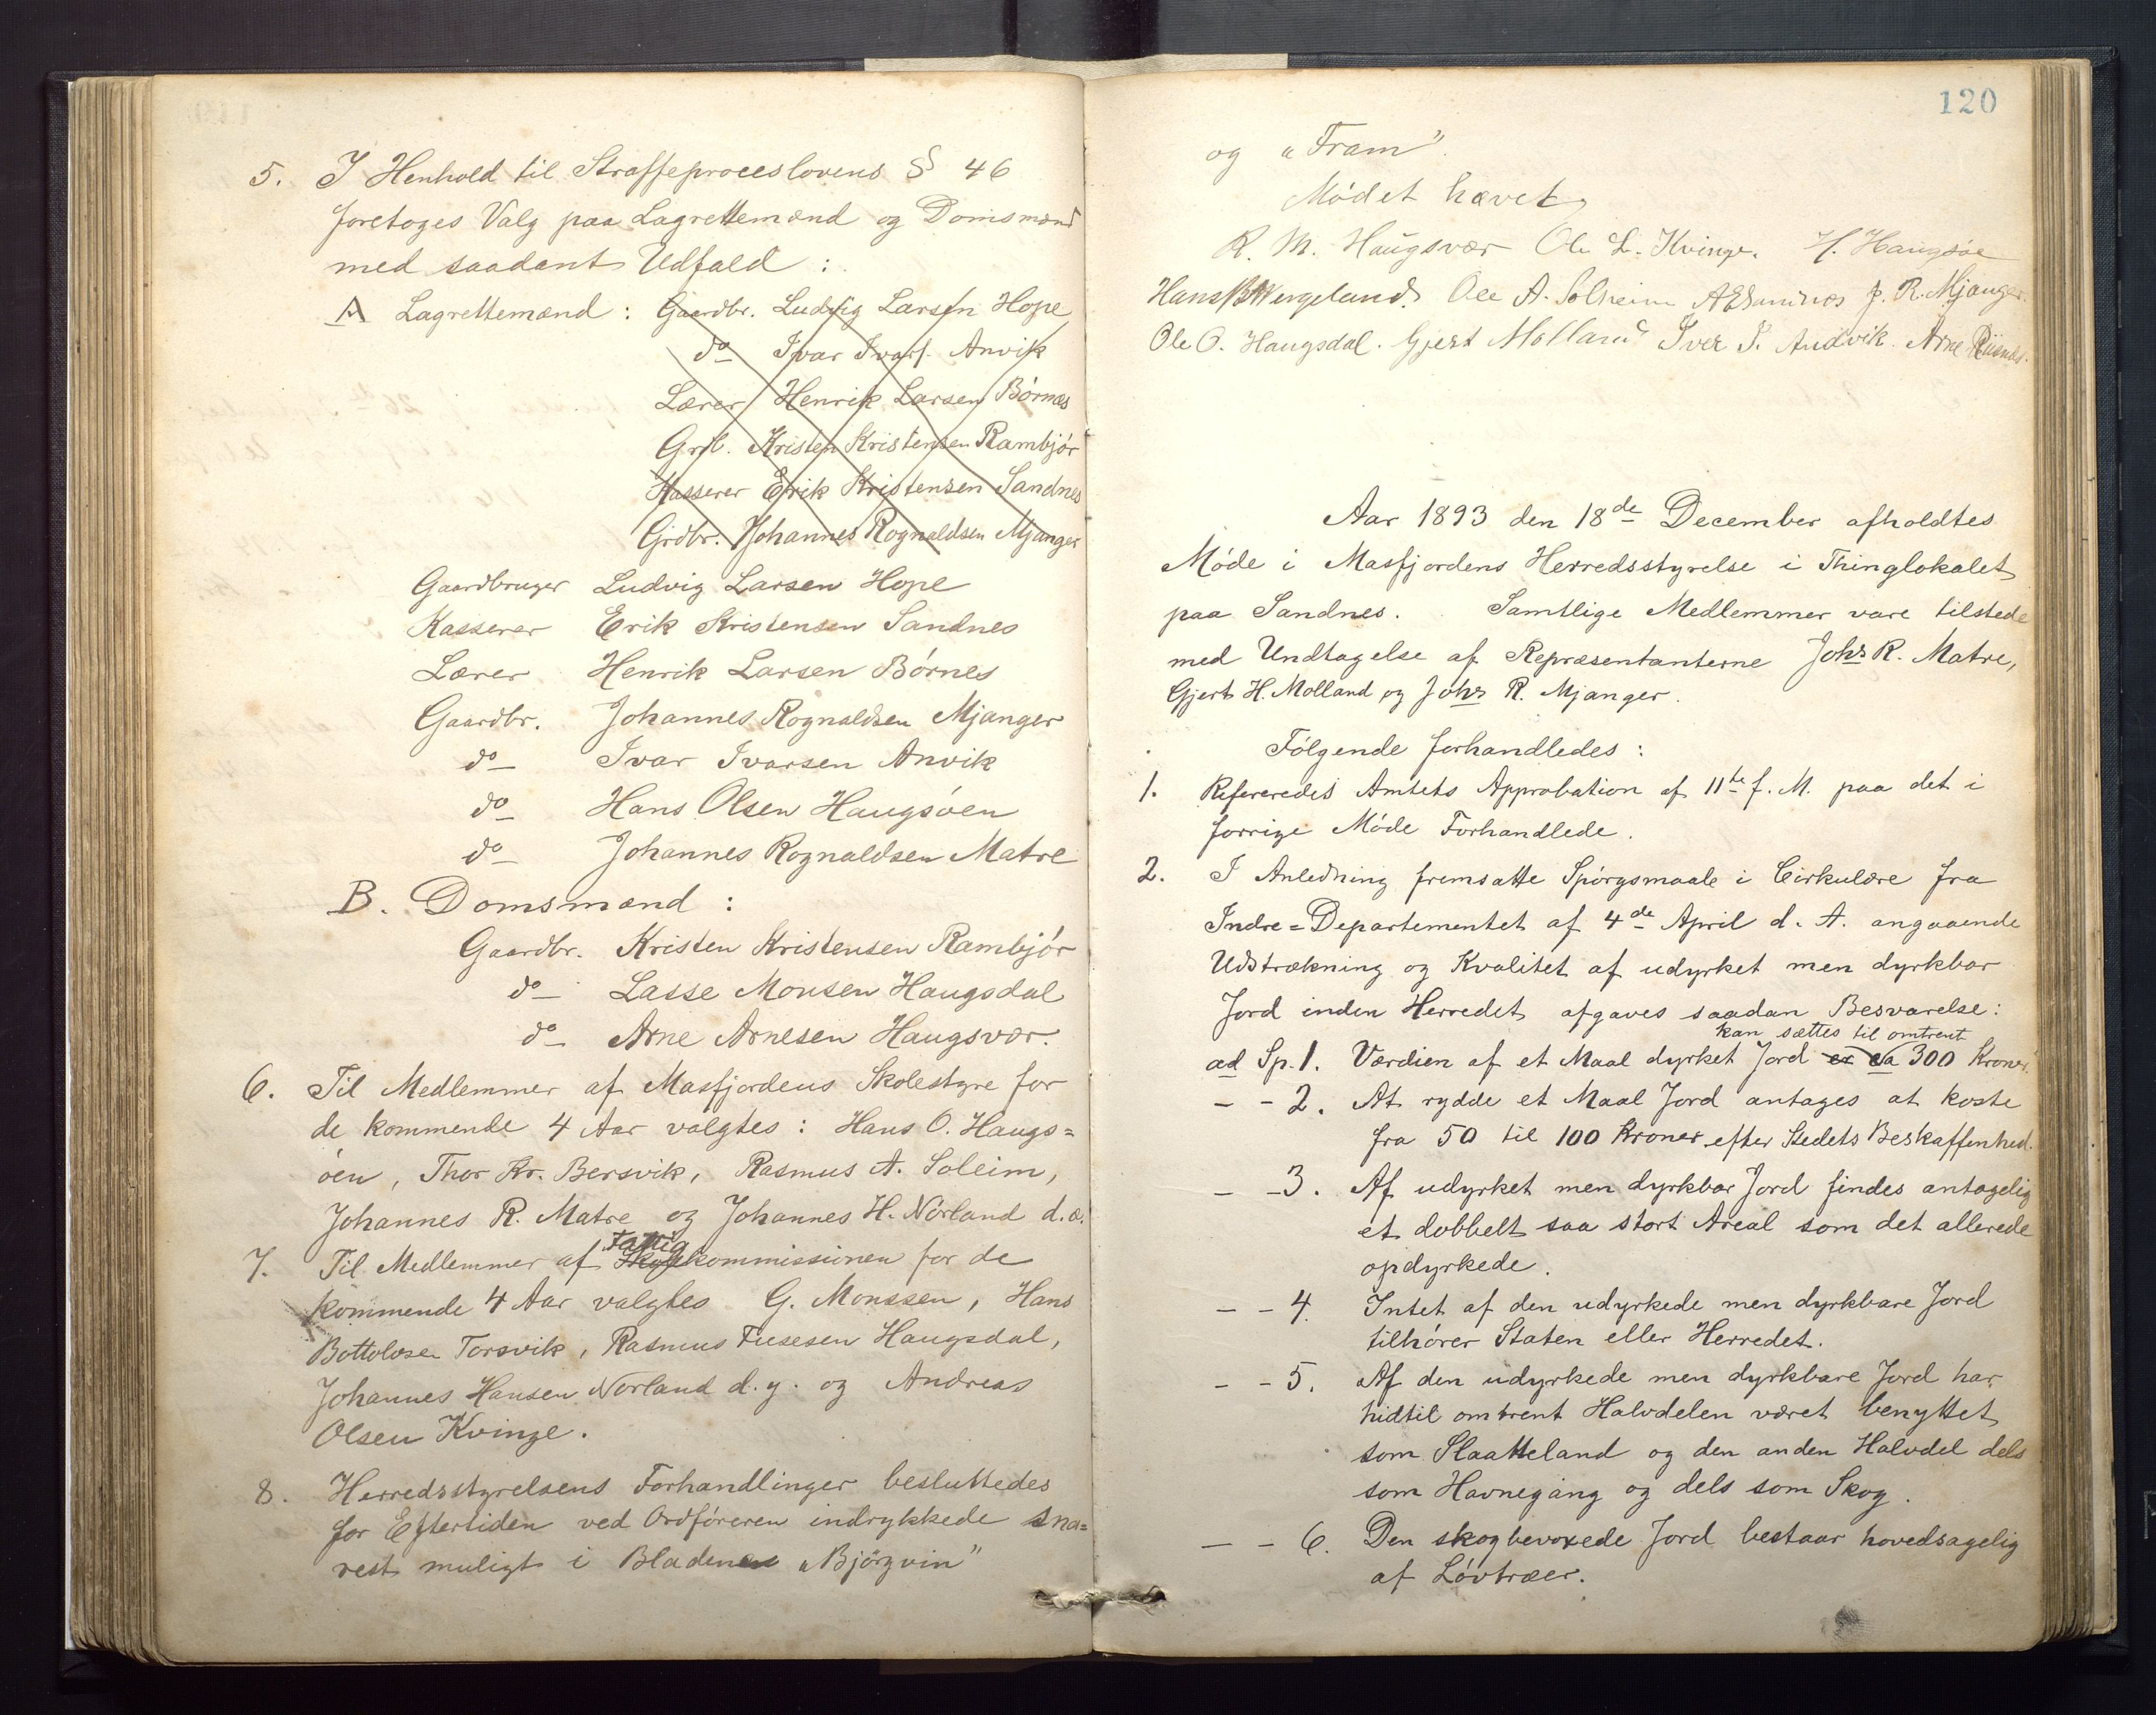 5. I Henhold til Straffeproceslovens § 46
foretoges Valg paa Lagrettemænd og Domsmænd
med saadant Udfald :
A Lagrettemænd : Gaardbr. Ludvig Larsen Hope
do Ivar Ivars. Anvik
Lærer Henrik Larsen Börnæs
Grb. Kristen Kristensen Rambjör
Kasserer Erik Kristensen Sandnes
Grdbr. Johannes Rognaldsen Mjanger
Gaardbruger Ludvig Larsen Hope
Kasserer Erik Kristensen Sandnes
Lærer Henrik Larsen Börnes
Gaardbr. Johannes Rognaldsen Mjanger
do Ivar Ivarsen Anvik
do Hans Olsen Haugsöen
do Johannes Rognaldsen Matre
B. Domsmænd :
Gaardbr. Kristen Kristensen Rambjör
do Lasse Monsen Haugsdal
do Arne Arnesen Haugsvær.
6. Til Medlemmer af Masfjordens Skolestyre for
de kommende 4 Aar valgtes : Hans O. Haugs=
öen, Thor Kr. Bersvik, Rasmus A. Soleim,
Johannes R. Matre og Johannes H. Nörland d.æ.
7. Til Medlemmer af Fattigkommissionen for de
kommende 4 Aar valgtes G. Monssen, Hans
Bottolvsen Torsvik, Rasmus Hausgdal,
Johannes Hansen Norland d.y. og Andreas
Olsen Kvinge.
8. Herredsstyrelsens Forhandlinger besluttedes
for Eftertiden ved Ordföreren indrykkede sna=
rest muligt i Bladene „Björgvin"
120
og „Fram".
Mödet hævet
R. M. Haugsvær Ole L. Kvinge. H. Haugsöe
Hans B Wergeland. Ole A. Solheim J. R. Mjanger.
Ole O. Haugsdal. Gjert Molland Iver I. Andvik. Arne Riisnæs.
Aar 1893 den 18de December afholdtes
Möde i Masfjordens Herredsstyrelse i Thinglokalet
paa Sandnes. Samtlige Medlemmer vare tilstede
med Undtagelse af Repræsentanterne Johs R. Matre,
Gjert H. Molland og Johs R. Mjanger.
Fölgende forhandledes :
1. Refereredes Amtets Approbation af 11te f. M. paa det i
forrige Möde Forhandlede.
2. I Anledning fremsatte Spörgsmaale i Cirkulære fra
Indre=Departementet af 4de April d. A. angaaende
Udstrækning og Kvalitet af udyrket men dyrkbar
Jord inden Herredet afgaves saadan Besvarelse :
kan sættes til omtrent
ad Sp. 1. Værdien af et Maal dyrket Jord er ca 300 Kroner.
- - 2. At rydde et Maal Jord antages at koste
fra 50 til 100 Kroner efter Stedets Beskaffenhed.
- - 3. Af udyrket men dyrkbar Jord findes antagelig
et dobbelt saa stort Areal som det allerede
opdyrkede.
- - 4. Intet af den udyrkede men dyrkbare Jord
tilhörer Staten eller Herredet.
- - 5. Af den udyrkede men dyrkbare Jord har
hidtil omtrent Halvdelen været benyttet
som Slaatteland og den anden Halvdel dels
som Havnegang og dels som Skog.
- - 6. Den skogbevoxede Jord bestaar hovedsagelig
af Lövtræer.